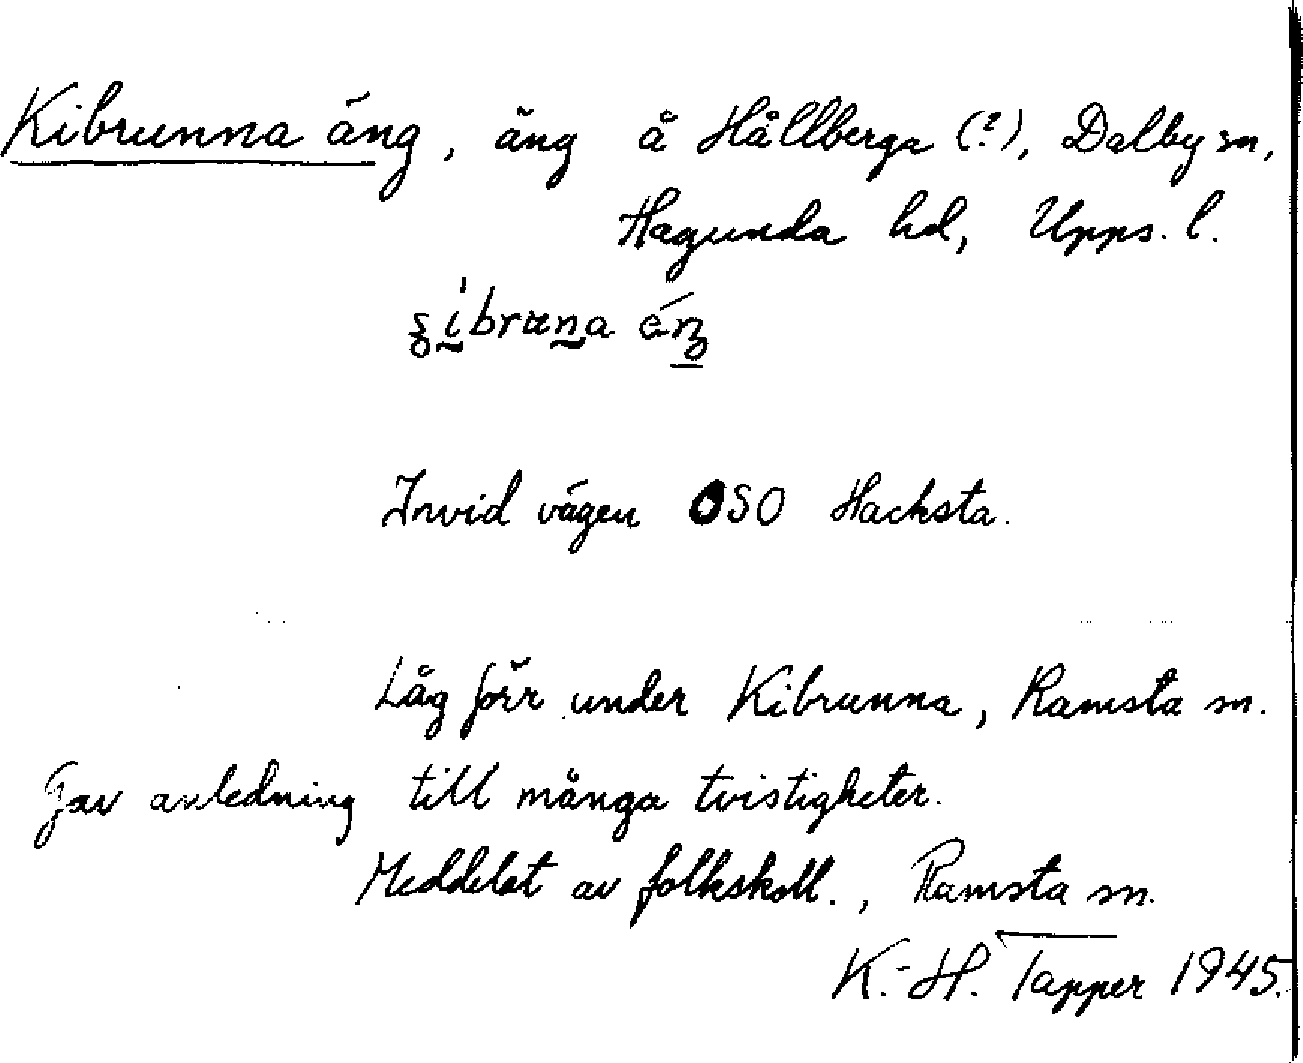 Kibrunna äng, äng å Hållberga (?), Dalby sn,
Hagunda hd, Upps. l.
Invid vägen OSO Hacksta.
Låg förr under Kibrunna, Ramsta sn.
Gav anledning till många tvistigheter.
Meddelat av folkskoll., Ramsta sn.
K.-H. Tapper 1945.